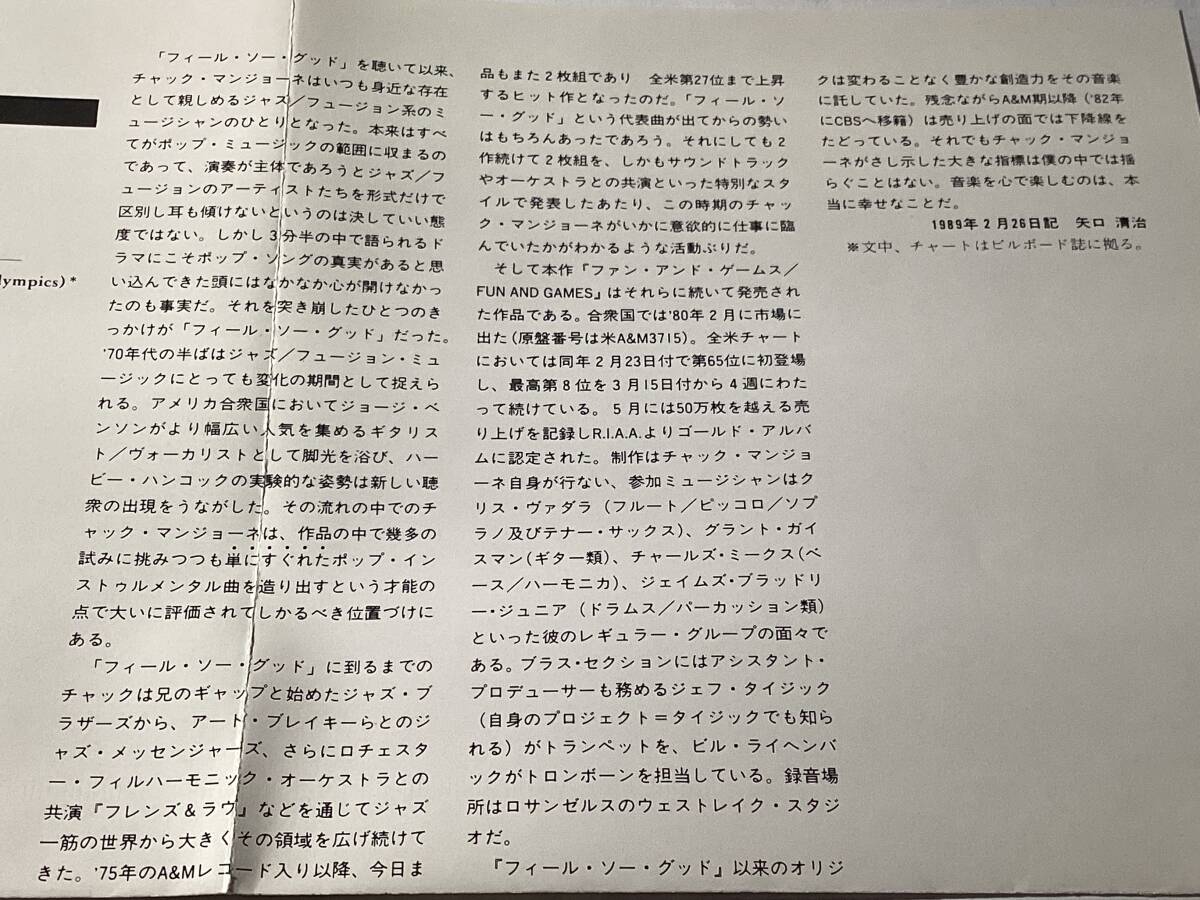 lympics)*
「フィール・ソー・グッド」を聴いて以来、
チャック・マンジョーネはいつも身近な存在
として親しめるジャズ／フュージョン系のミ
ュージシャンのひとりとなった。本来はすべ
てがポップ・ミュージックの範囲に収まるの
であって、演奏が主体であろうとジャズ／フ
ュージョンのアーティストたちを形式だけで
区別し耳も傾けないというのは決していい態
度ではない。しかし3分半の中で語られるド
ラマにこそポップ・ソングの真実があると思
い込んできた頭にはなかなか心が開けなかっ
たのも事実だ。それを突き崩したひとつのき
っかけが「フィール・ソー・グッド」だった。
'70年代の半ばはジャズ／フュージョン・ミュ
ージックにとっても変化の期間として捉えら
れる。アメリカ合衆国においてジョージ・ベ
ンソンがより幅広い人気を集めるギタリス
ト／ヴォーカリストとして脚光を浴び、ハー
ビー・ハンコックの実験的な姿勢は新しい聴
衆の出現をうながした。その流れの中でのチ
ャック・マンジョーネは、作品の中で幾多の
試みに挑みつつも単にすぐれたポップ・イン
ストゥルメンタル曲を造り出すという才能の
点で大いに評価されてしかるべき位置づけに
ある。
「フィール・ソー・グッド」に到るまでの
チャックは兄のギャップと始めたジャズ・ブ
ラザーズから、アート・ブレイキーらとのジ
ャズ・メッセンジャーズ、さらにロチェスタ
ー・フィルハーモニック・オーケストラとの
共演『フレンズ＆ラヴ』などを通じてジャズ
一筋の世界から大きくその領域を広げ続けて
きた。'75年のA&Mレコード入り以降、今日ま
品もまた2枚組であり 全米第27位まで上昇
するヒット作となったのだ。「フィール・ソ
ー・グッド」という代表曲が出てからの勢い
はもちろんあったであろう。それにしても2
作続けて2枚組を、しかもサウンドトラック
やオーケストラとの共演といった特別なスタ
イルで発表したあたり、この時期のチャッ
ク・マンジョーネがいかに意欲的に仕事に臨
んでいたかがわかるような活動ぶりだ。
そして本作『ファン・アンド・ゲームス／
FUN AND GAMES』はそれらに続いて発売され
た作品である。合衆国では'80年2月に市場に
出た(原盤番号は米A&M3715)。全米チャート
においては同年2月23日付で第65位に初登場
し、最高第8位を3月15日付から4週にわた
って続けている。5月には50万枚を越える売
り上げを記録しR.I.A.A.よりゴールド・アルバ
ムに認定された。制作はチャック・マンジョ
ーネ自身が行ない、参加ミュージシャンはク
リス・ヴァダラ（フルート／ピッコロ／ソプ
ラノ及びテナー・サックス）、グラント・ガイ
スマン(ギター類)、チャールズ・ミークス(ベ
ース／ハーモニカ)、ジェイムズ・ブラッドリ
ー・ジュニア（ドラムス／パーカッション類）
といった彼のレギュラー・グループの面々で
ある。ブラス・セクションにはアシスタント・
プロデューサーも務めるジェフ・タイジック
（自身のプロジェクト＝タイジックでも知ら
れる）がトランペットを、ビル・ライヘンバ
ックがトロンボーンを担当している。録音場
所はロサンゼルスのウェストレイク・スタジ
オだ。
『フィール・ソー・グッド』以来のオリジ
クは変わることなく豊かな創造力をその音楽
に託していた。残念ながらA&M期以降（'82年
にCBSへ移籍）は売り上げの面では下降線を
たどっている。それでもチャック・マンジョ
ーネがさし示した大きな指標は僕の中では揺
らぐことはない。音楽を心で楽しむのは、本
当に幸せなことだ。
1989年2月26日記 矢口 清治
※文中、チャートはビルボード誌に拠る。